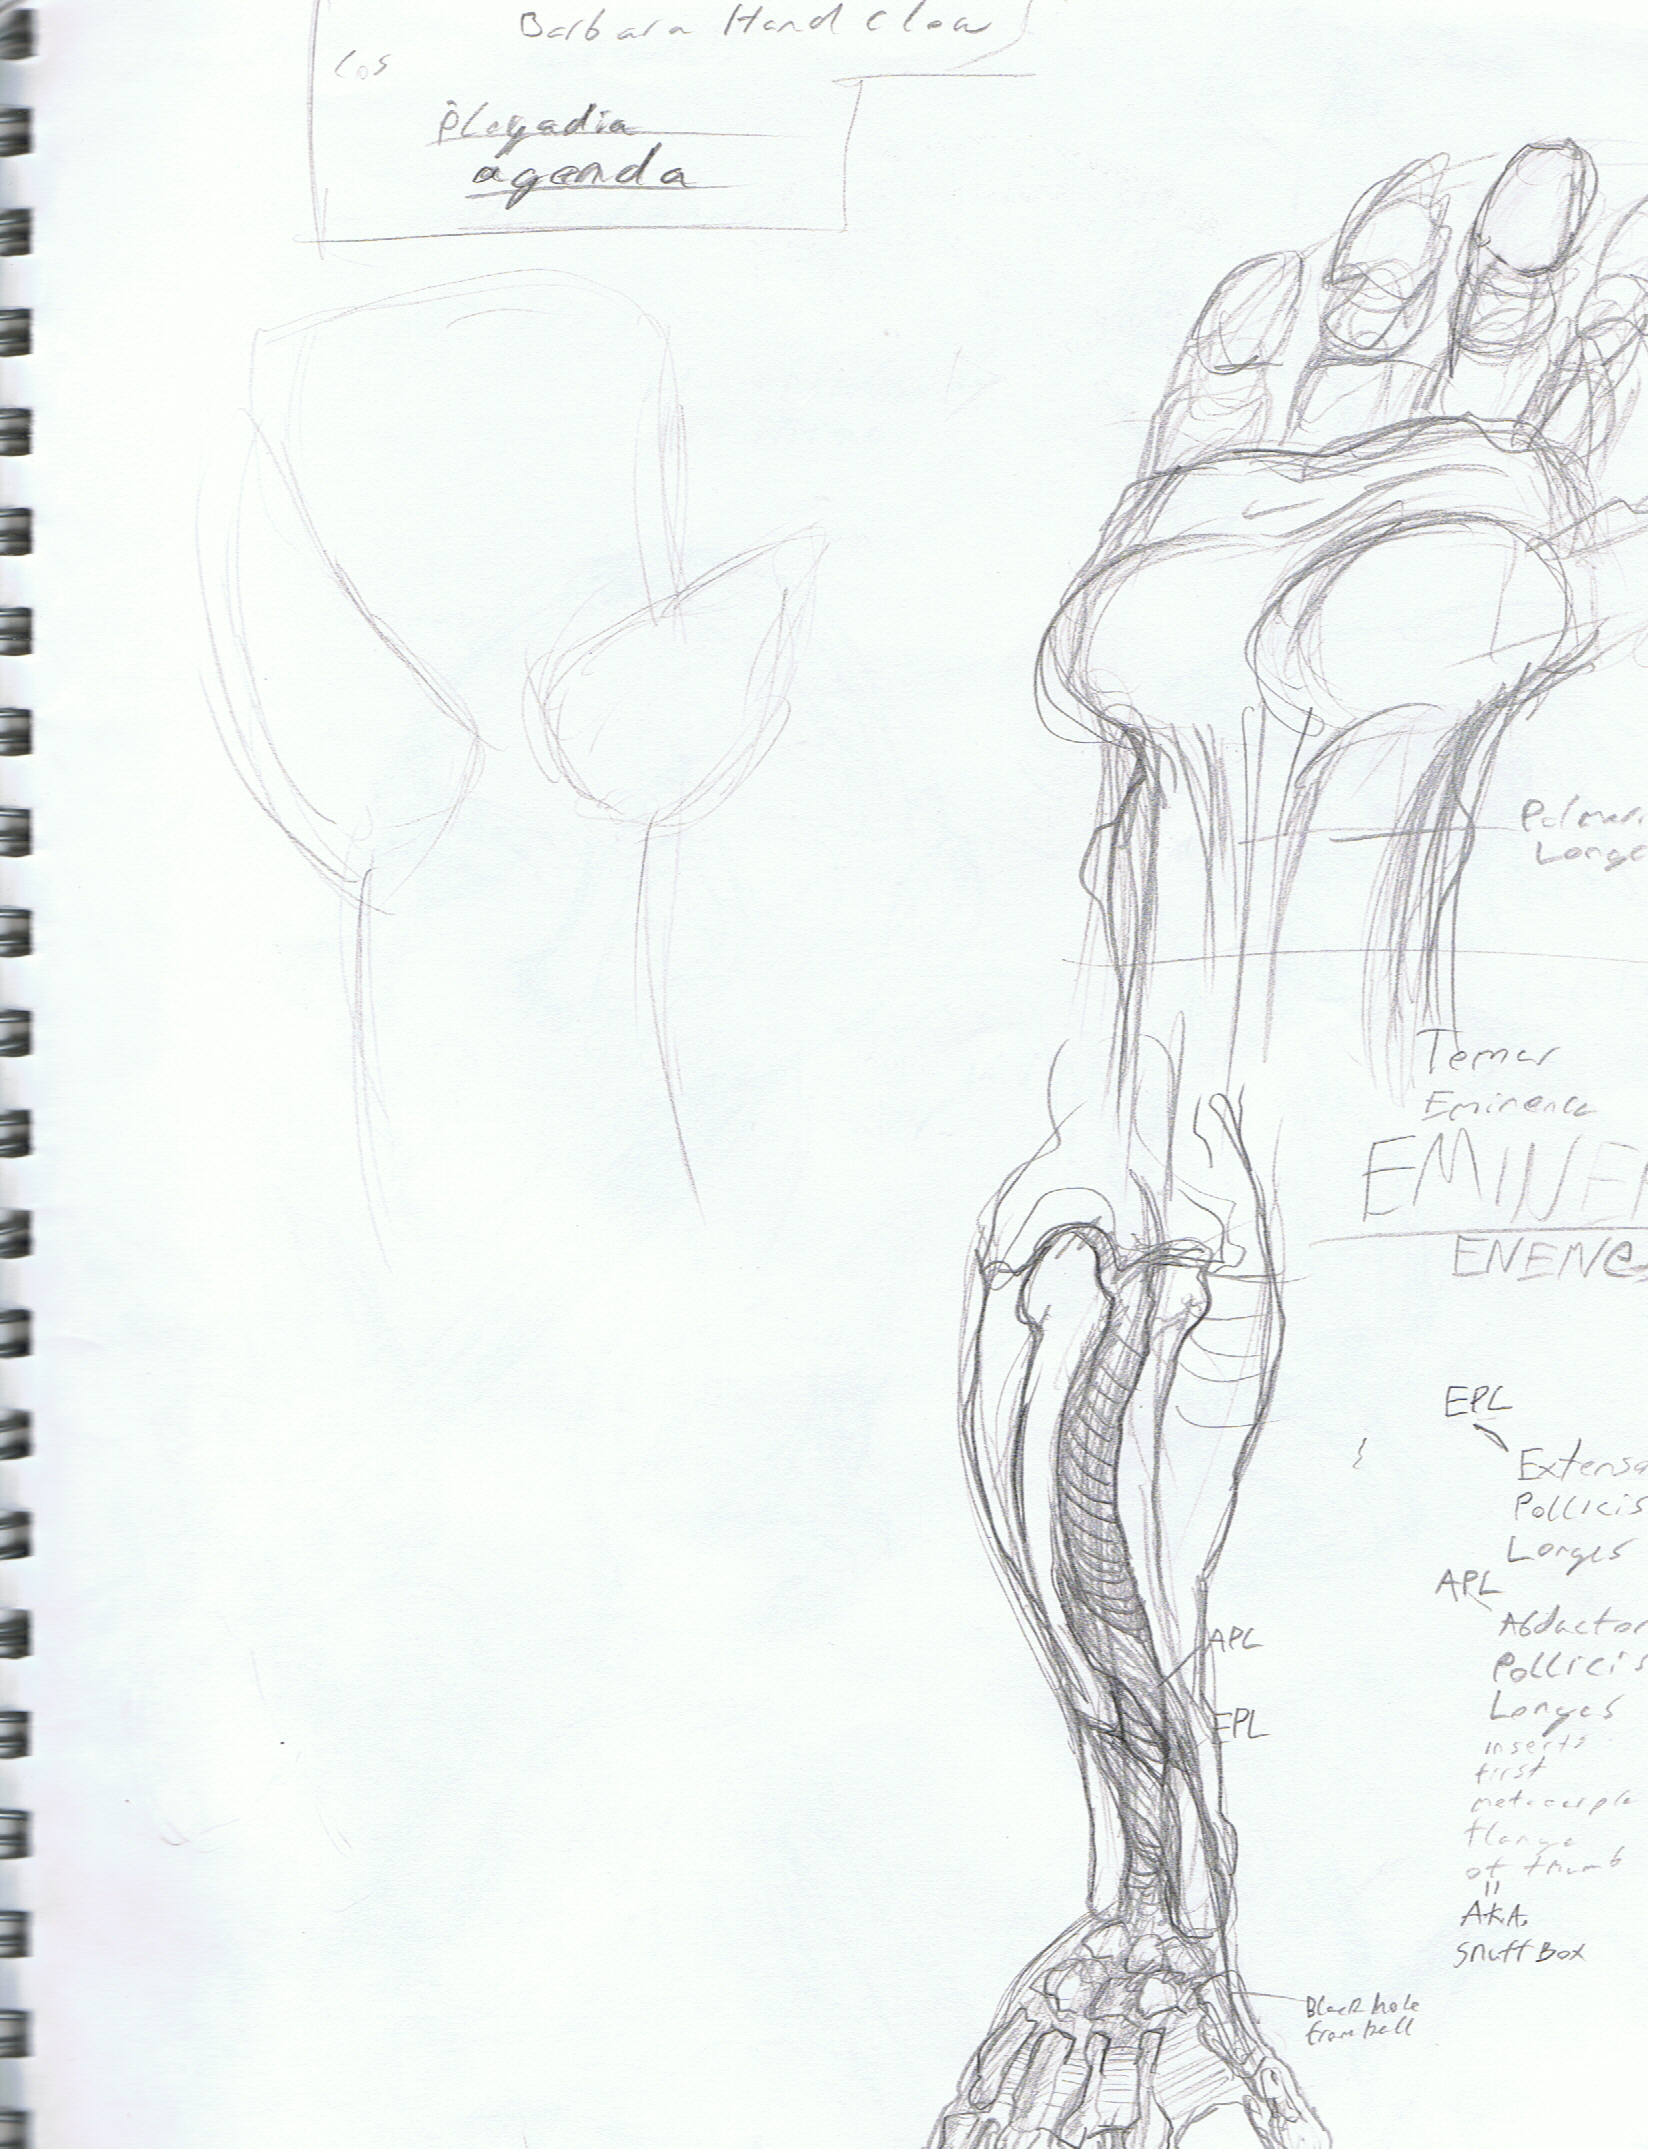 Barbara Hand Clow
Cos
Pleyadia
agenda
Palmari
Longe
Temar
Eminence
EMINEN
ENENCE
EPL
Extenso
Pollicis
Longes
APL
Abductor
Pollicis
Longes
inserts
first
metacarple
flange
of thumb
"
A.K.A.
snuff Box
APL
EPL
Black hole
from hell